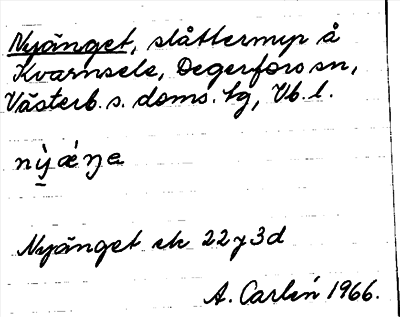 Nyänget, slåttermyr å
Kvarnsele, Degerfors sn,
Västerb. s. doms. tg, Vb. l.
nỳ ǽŋe
Nyänget ek 22y3d
A. Carlén 1966.